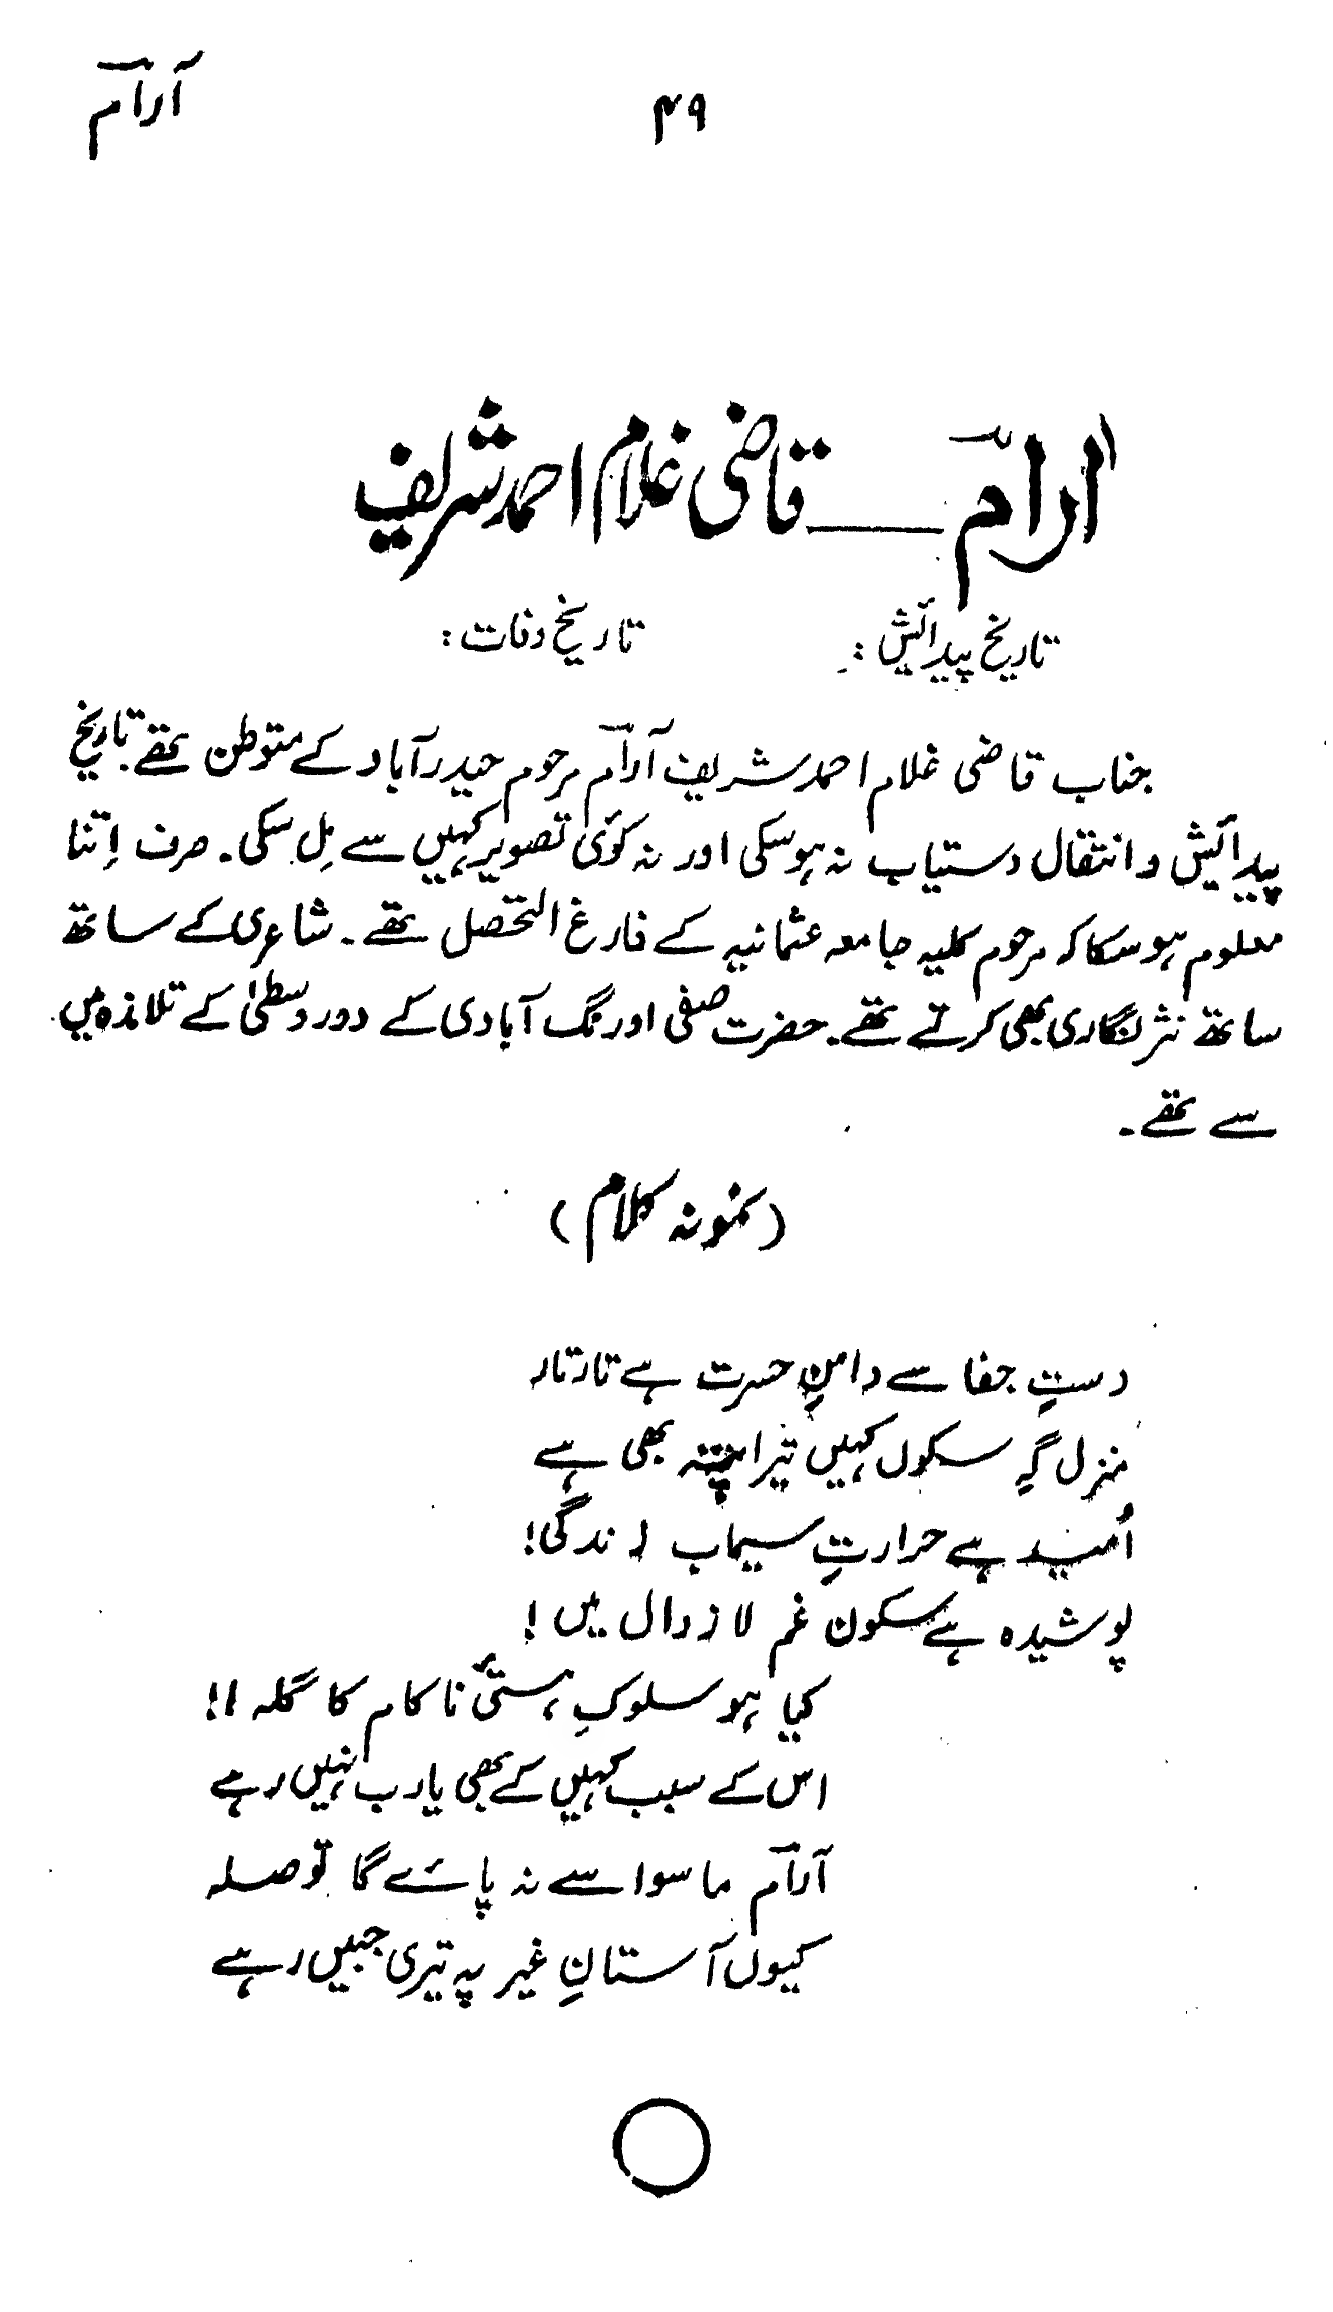 آرام
۴۹
آرام ـــــ قاضی غلام احمد شریف
تاریخ پیدائش : تاریخ وفات :
جناب قاضی غلام احمد شریف آرام مرحوم حیدرآباد کے متوطن تھے۔ تاریخ
پیدائش و انتقال دستیاب نہ ہوسکی اور نہ کوئی تصویر کہیں سے مِل سکی۔ صرف اِتنا
معلوم ہوسکا کہ مرحوم کلیہ جامعہ عثمانیہ کے فارغ التحصل تھے۔ شاعری کے ساتھ
ساتھ نثر نگاری بھی کرتے تھے۔ حضرت صفی اورنگ آبادی کے دور وسطیٰ کے تلامذہ میں
سے تھے۔
(نمونہ کلام)
دستِ جفا سے دامنِ حسرت ہے تار تار
منزل گہِ سکوں کہیں تیرا پتہ بھی ہے
اُمید ہے حرارتِ سیماب زندگی!
پوشیدہ ہے سکون غم لازوال میں!
کیا ہو سلوکِ ہستیٔ ناکام کا گلہ !!
اس کے سبب کہیں کے بھی یارب نہیں رہے
آرام ماسوا سے نہ پائے گا تو صلہ
کیوں آستانِ غیر پہ تیری جبیں رہے